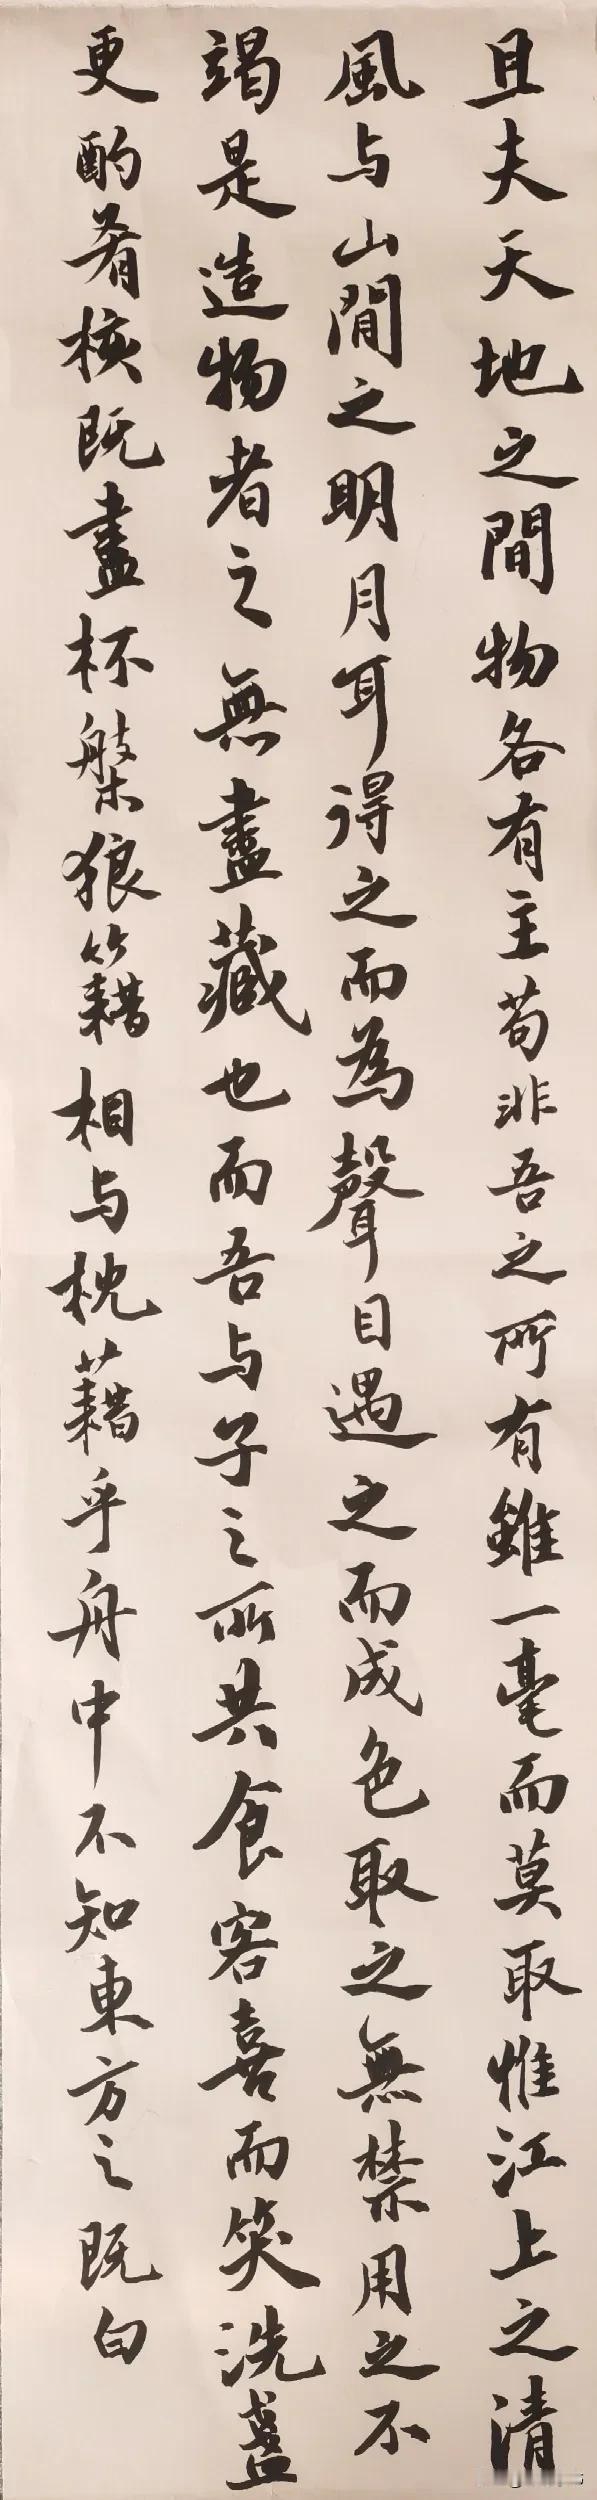 且夫天地之間物各有主苟非吾之所有雖一毫而莫取惟江上之清
風与山間之明月耳得之而為聲目遇之而成色取之無禁用之不
竭是造物者之無盡藏也而吾与子之所共食客喜而笑洗盞
更酌肴核既盡杯槃狼籍相与枕藉乎舟中不知東方之既白